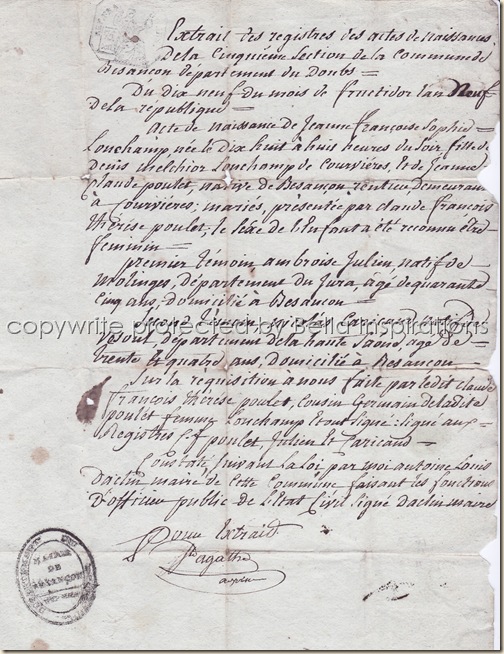 Extrait des registres des actes de naissances
de la Cinquiéme Section de la Commune de
Besançon département du Doubs =
Du dix neuf du mois de fructidor l'an Neuf
de la république =
Acte de naissance de Jeanne françoise Sophie
Louchamp née le dix huit à huit heures du soir, fille de
denis melchior Louchamp de Courvières, et de Jeanne
Claude poulet, native de Besançon, rentier demeurant
à Courvières; mariés, présentée par claude françois
thérèse poulet, le sexe de l'Enfant a été reconnu être
feminin =
premier témoin ambroise Julien natif de
département du Jura, agé de quarante
Cinq ans, domicilié à Besançon =
copywrite protected by Bella Inspirations
Vesoul, département de la haute Saone, agé de
trente et quatre ans, domicilié à Besançon
Sur la réquisition à nous faite par ledit claude
françois thérèse poulet, cousin Germain de la dite
poulet femme Louchamp Et ont signé: signé aux
Registres poulet Julien et
Constaté, suivant la loi par moi antoine Louis
daclin maire de cette Commune faisant les fonctions
d'officier public de l'Etat Civil signé daclin maire
Pour Extrait
DE
BESANÇON